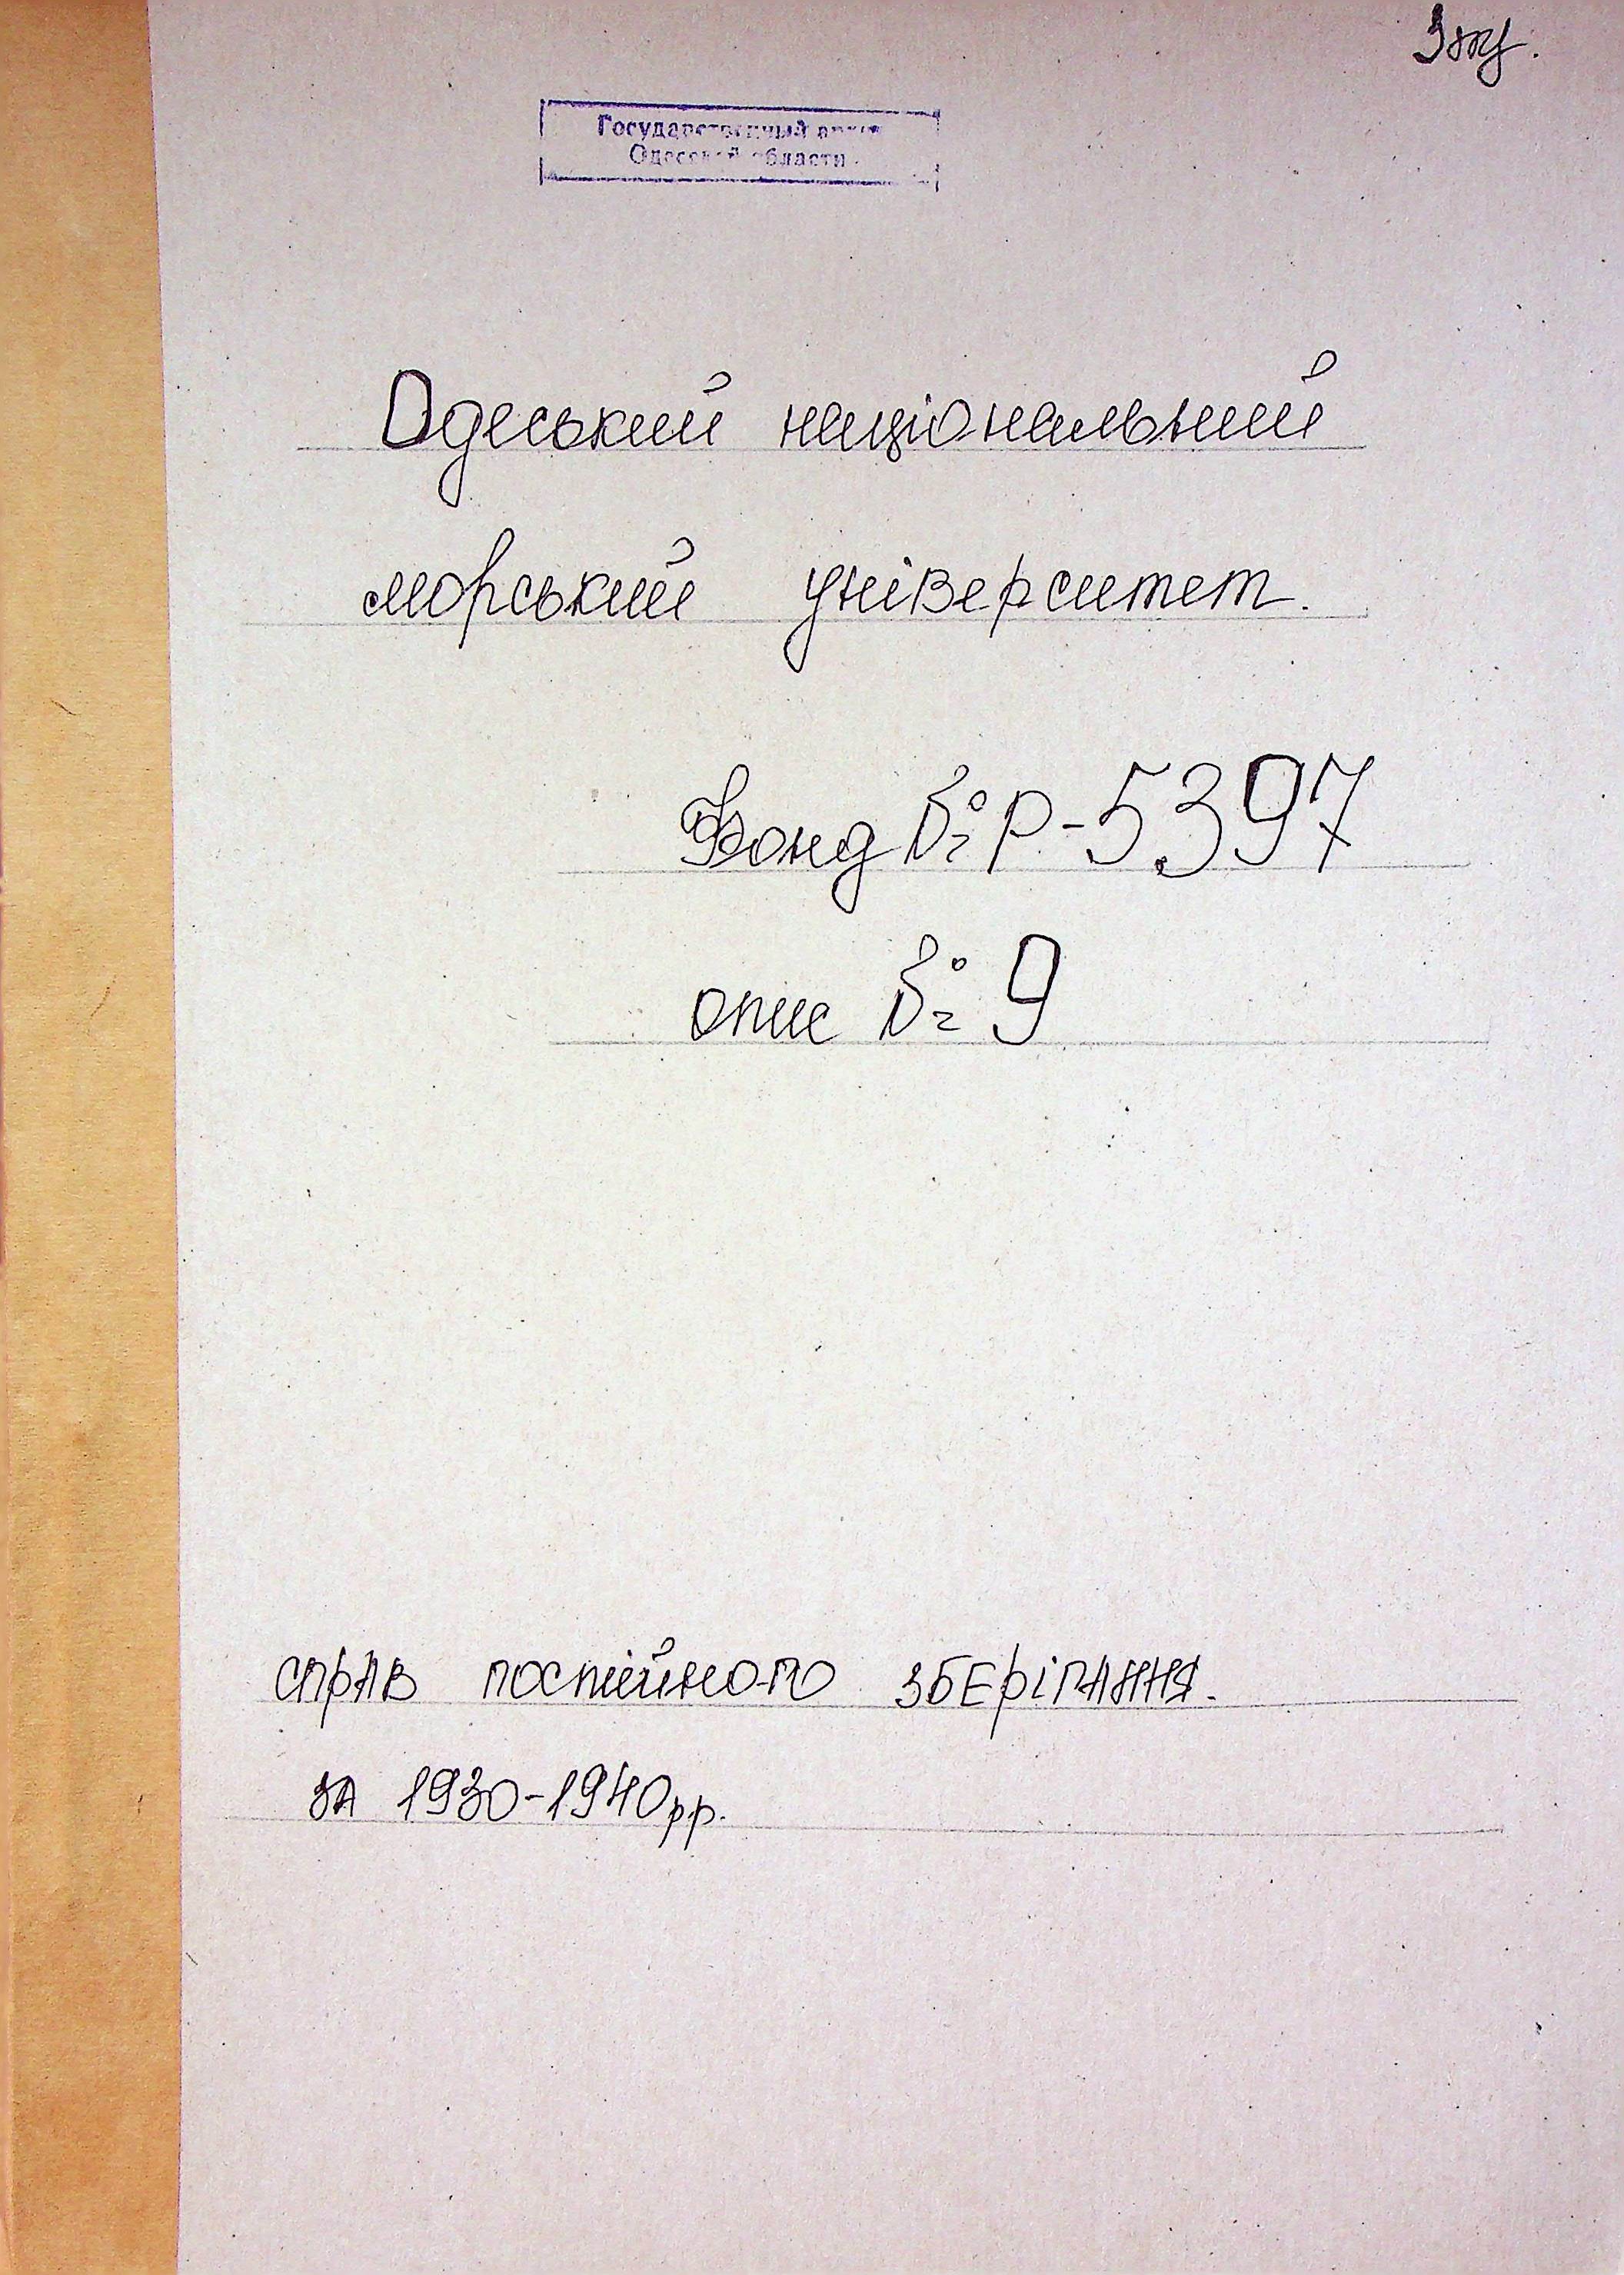 Государственный архив
Одесской области
Одеський національний
морський університет.
Фонд № Р-5397
опис № 9
справ постійного зберігання.
за 1930-1940 рр.